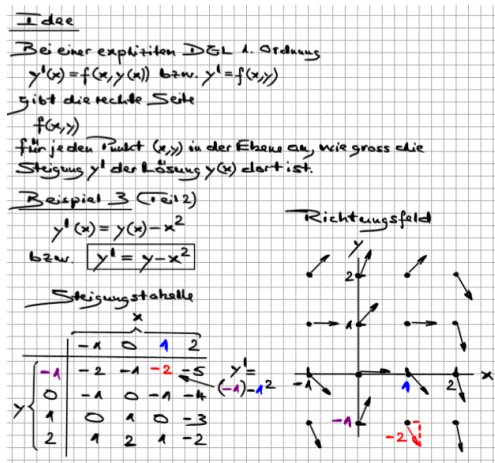 Idee
Bei einer expliziten DGL 1. Ordnung
y'(x) = f(x,y(x)) bzw. y' = f(x,y)
gibt die rechte Seite
f(x,y)
für jeden Punkt (x,y) in der Ebene an, wie gross die
Steigung y' der Lösung y(x) dort ist.
Beispiel 3 (Teil 2)
y'(x) = y(x) - x²
bzw. y' = y - x²
Steigungstabelle
x
-1 0 1 2
-1 -2 -1 -2 -5
0 -1 0 -1 -4
1 0 1 0 -3
2 1 2 1 -2
y
y' =
(-1) - 1²
Richtungsfeld
y
2
1
-1 1 2 x
-1
-2